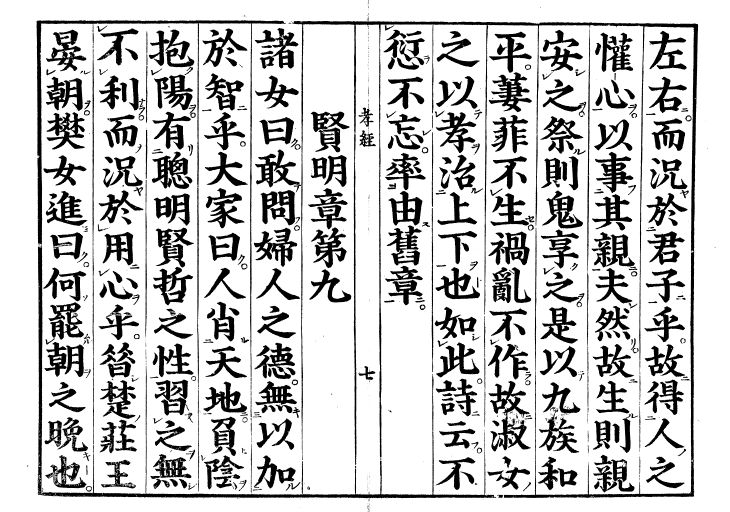 左右而況於君子乎故得人之
懽心以事其親夫然故生則親
安之祭則鬼享之是以九族和
平萋菲不生禍亂不作故淑女
之以孝治上下也如此詩云不
愆不忘率由舊章
孝經
七
賢明章第九
諸女曰敢問婦人之德無以加
於智乎大家曰人肖天地負陰
抱陽有聰明賢哲之性習之無
不利而況於用心乎晉楚莊王
晏朝樊女進曰何罷朝之晚也